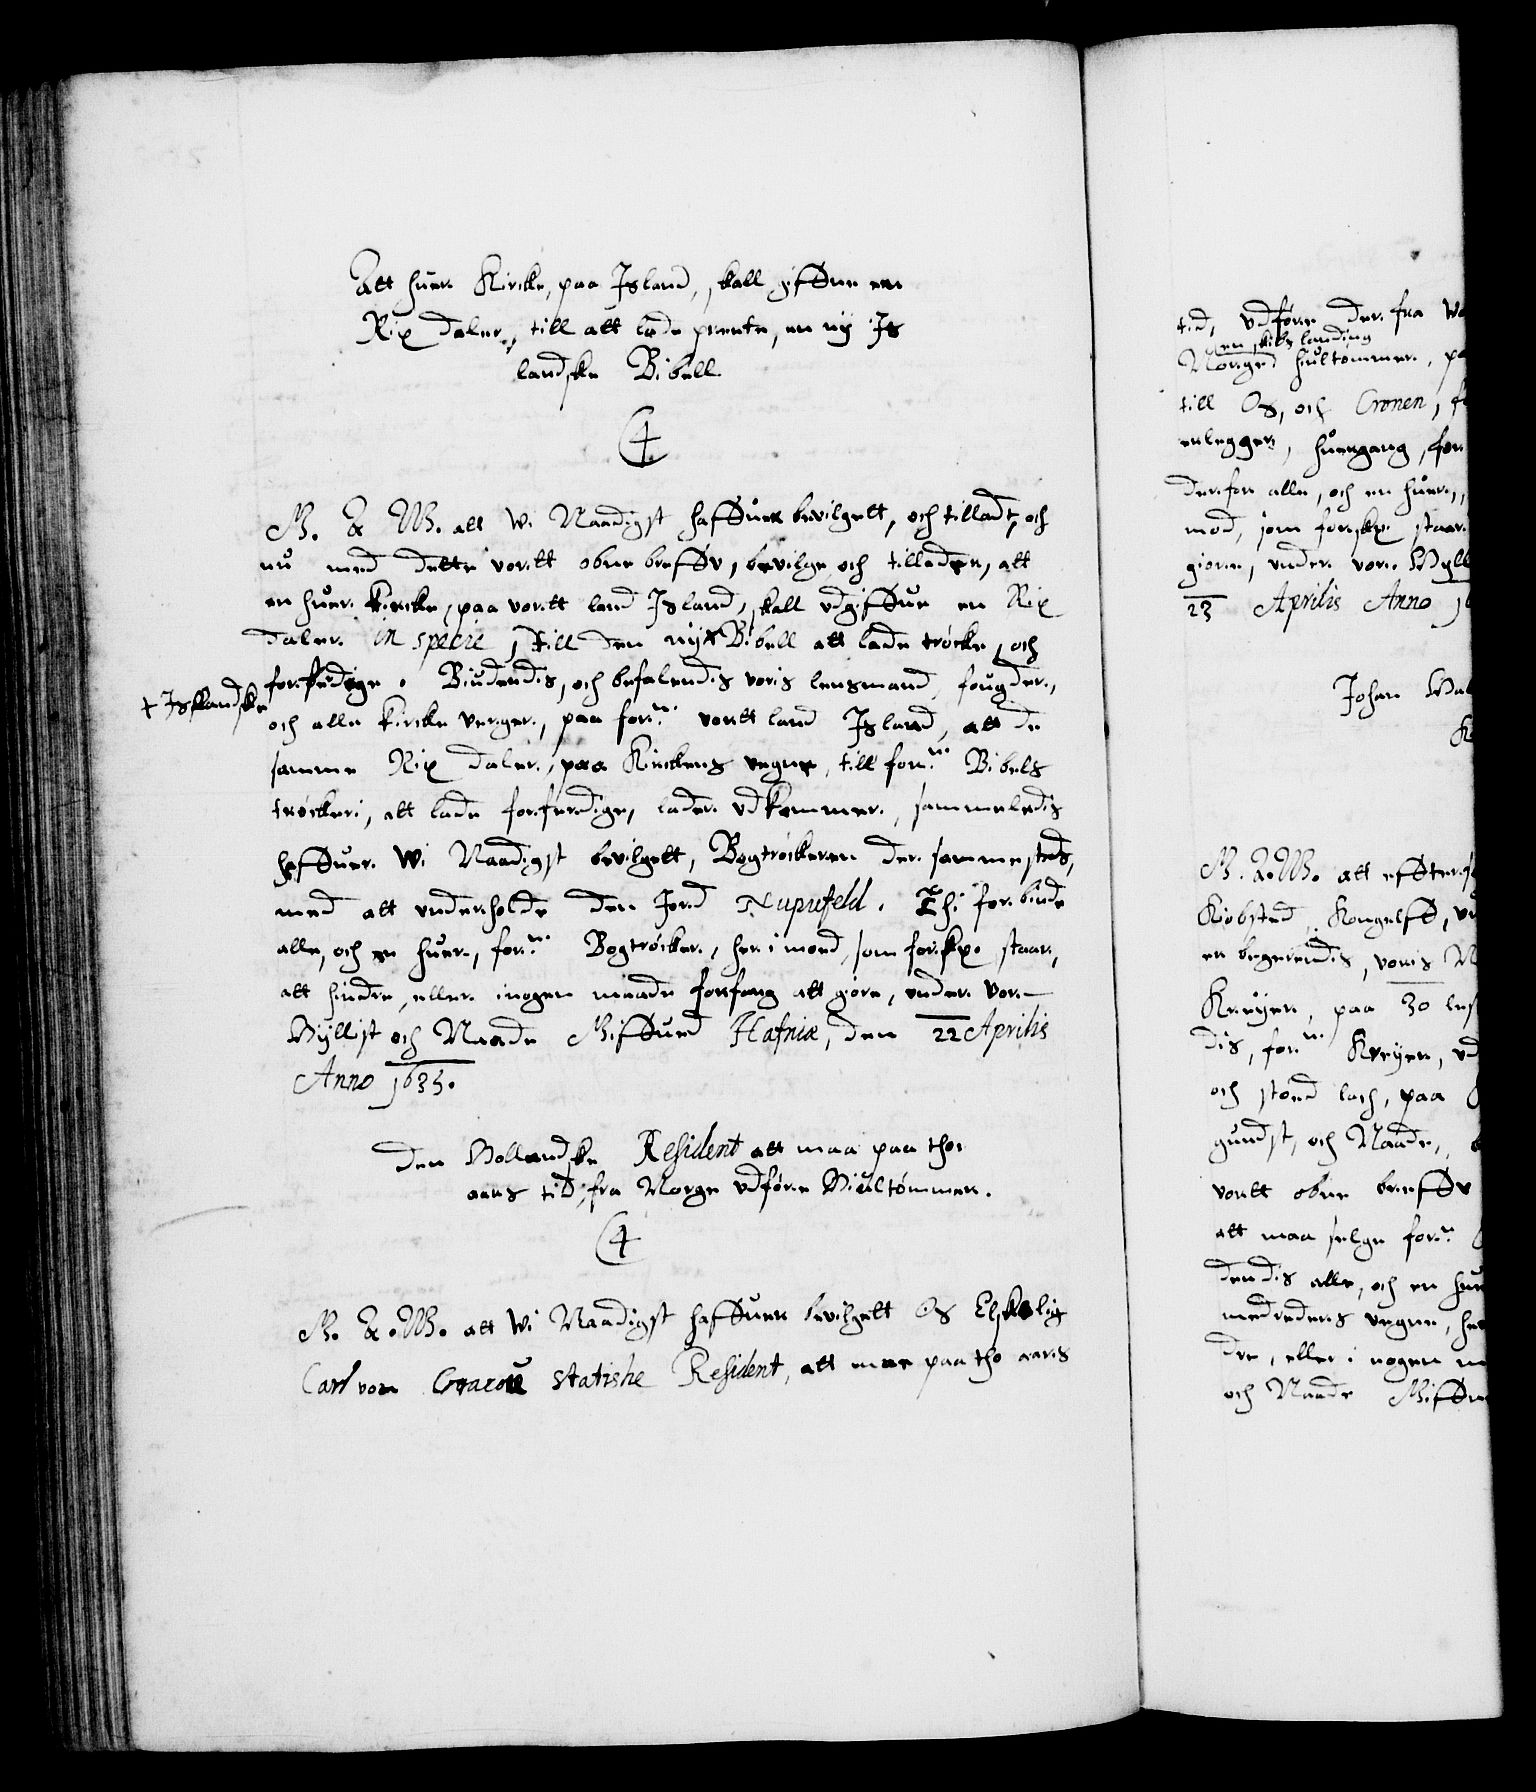 Att huer Kircke, paa Jsland, skall giffue en
Rix daler, till att lade prente, en ny Js
landske Bibell.
C4.
G. A. W. att Wi Naadigst haffuer bevilgett, och tilladt, och
nu med dette vortt obne breffv, bevilge och tillader, att
en huer kircke, paa vortt land Jsland, skall udgiffue en Rix
daler in specie, till den ny + Bibell att lade tröcke, och
forferdige. Biudendis, och befalendis voris lensmand, fougder,
+ Jsslandske
och alle kircke verger, paa forne. vortt land Jsland, att de
samme Rix daler, paa Kirckens vegne, till forne. Bibels
tröckeri, att lade forferdige, lader udkommer, sammeledis
haffuer Wi Naadigst bevilgett, Bogtröckeren der sammesteds,
med att underholde den Jord Nupufeld. Thi forbiude
alle, och en huer, forne. Bogtröcker, her i mod, som forskr. staar,
att hindre, eller i nogen maade forfang att giöre, under vor
Hyllist och Naade Giffued Hafniæ, den 22 Aprilis
Anno 1635.
Den Hollandske Resident att maa paa tho
aars tid, fra Norge udföre Hiultömmer.
C4
G. A. W. att Wi Naadigst haffuer bevilgett Os Elskelig
Carl von Cracou statishe Resident, att maa paa tho aars
tid, udföre der fra
en skibs landing
Norge Hiultömmer,
till Os, och Cronen,
erlegger, huergang, for
der for alle, och en huer,
mod, som forskr. staar
giöre, under vor Hyll
23 Aprilis Anno 16
Johan
G. A. W. att effter
Kiöbsted Kongelff,
er begerendis, voris
Kreyer, paa 30 les
dis, forne. Kreyer, ud
och stoed lach, paa
gundst, och Naade,
vortt obne breffv
att maa selge forne.
dendis alle, och en hu
medreders vegne, her
dre, eller i nogen
och Naade Giffue